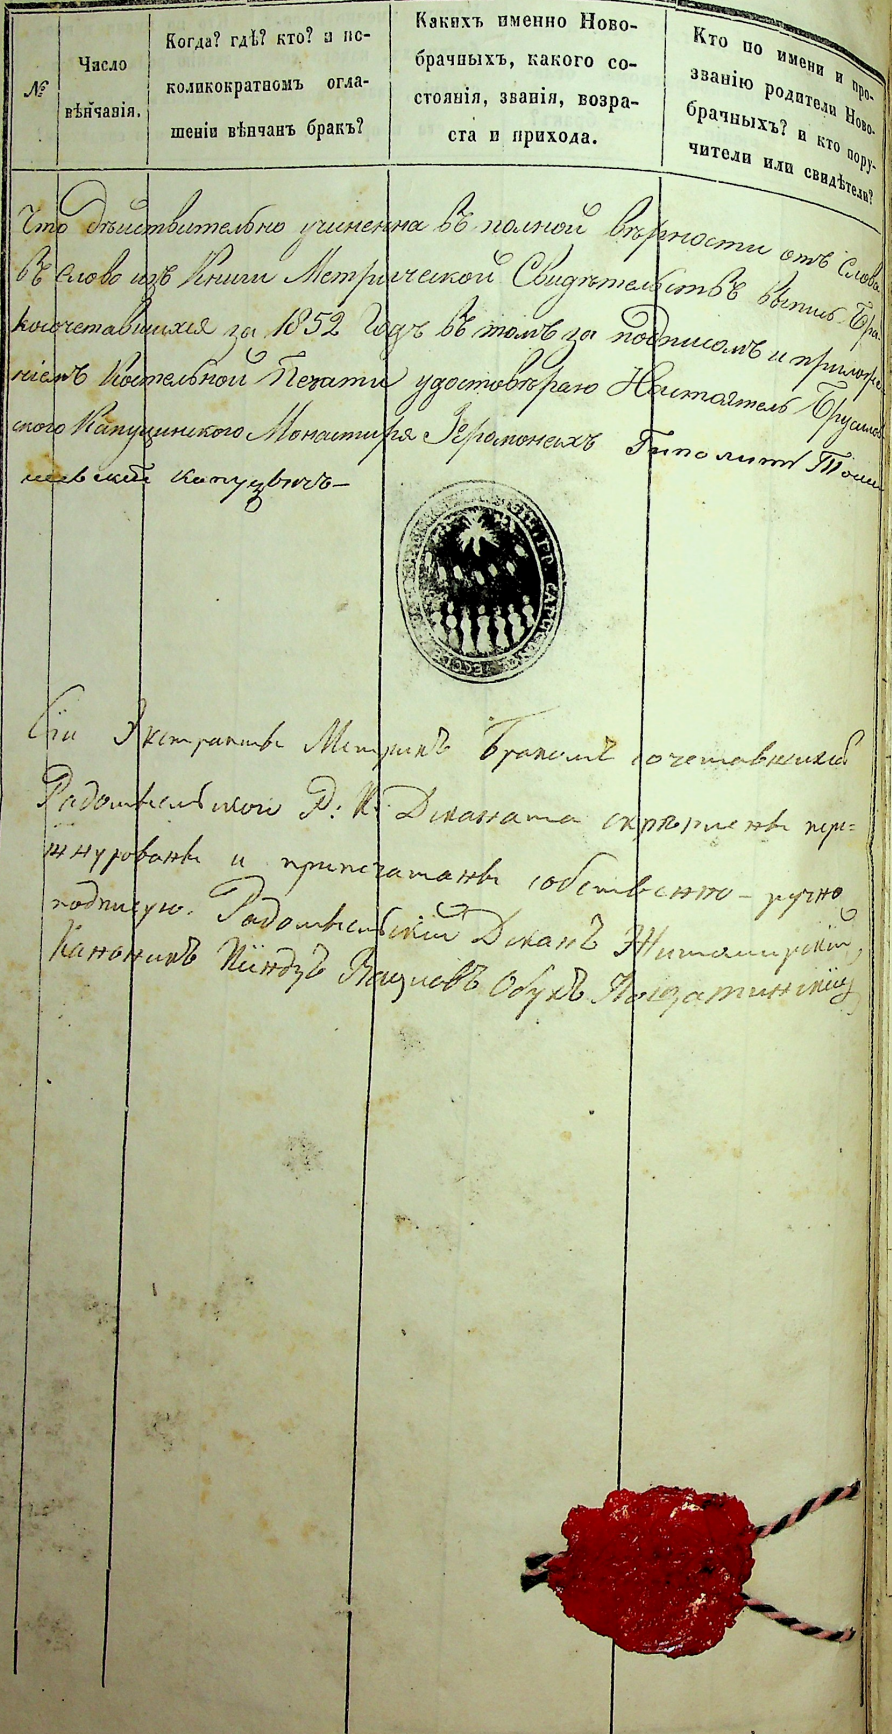 №
Число
вѣнчанія.
Когда? гдѣ? кто? и по-
коликократномъ огла-
шеніи вѣнчанъ бракъ?
Какихъ именно Ново-
брачныхъ, какого со-
стоянія, званія, возра-
ста и прихода.
Кто по имени и про-
званію родители Ново-
брачныхъ? и кто пору-
чители или свидѣтели?
Что дѣйствительно учиненна въ полной вѣрности отъ слова
въ слово изъ Книги Метрической Свидѣтельствъ выпись Бра
косочетавшихся за 1852 Годъ въ томъ за подписомъ и приложе
ніемъ Костельной Печати удостовѣряю Настоятель Брусилов
ского Капуцинского Монастыря Іеромонахъ Гиполитъ
капуцинъ
Сіи Экстракты Метрикъ Бракомъ сочетавшихся
Радомысльской Р: К: Деканата скрѣплены пере=
шнурованы и припечатаны собственно-ручно
подписую. Радомысльскій Деканъ Житомирскій
Каноникъ Ксіндзъ Обухъ